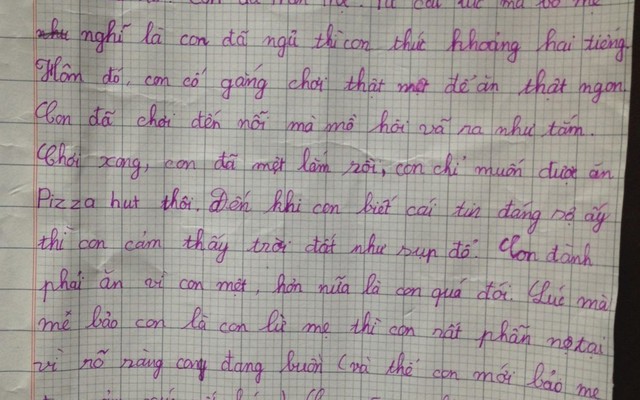 nghĩ là con đã ngủ thì con thức khoảng hai tiếng.
Hôm đó, con cố gắng chơi thật mệt để ăn thật ngon.
Con đã chơi đến nỗi mà mồ hôi vã ra như tắm.
Chơi xong, con đã mệt lắm rồi, con chỉ muốn được ăn
Pizza hut thôi. Đến khi con biết cái tin đáng sợ ấy
thì con cảm thấy trời đất như sụp đổ. Con đành
phải ăn vì con mệt, hơn nữa là con quá đói. Lúc mà
mẹ bảo con là con lừ mẹ thì con rất phẫn nộ tại
vì rõ ràng con đang buồn (và thế con mới bảo mẹ